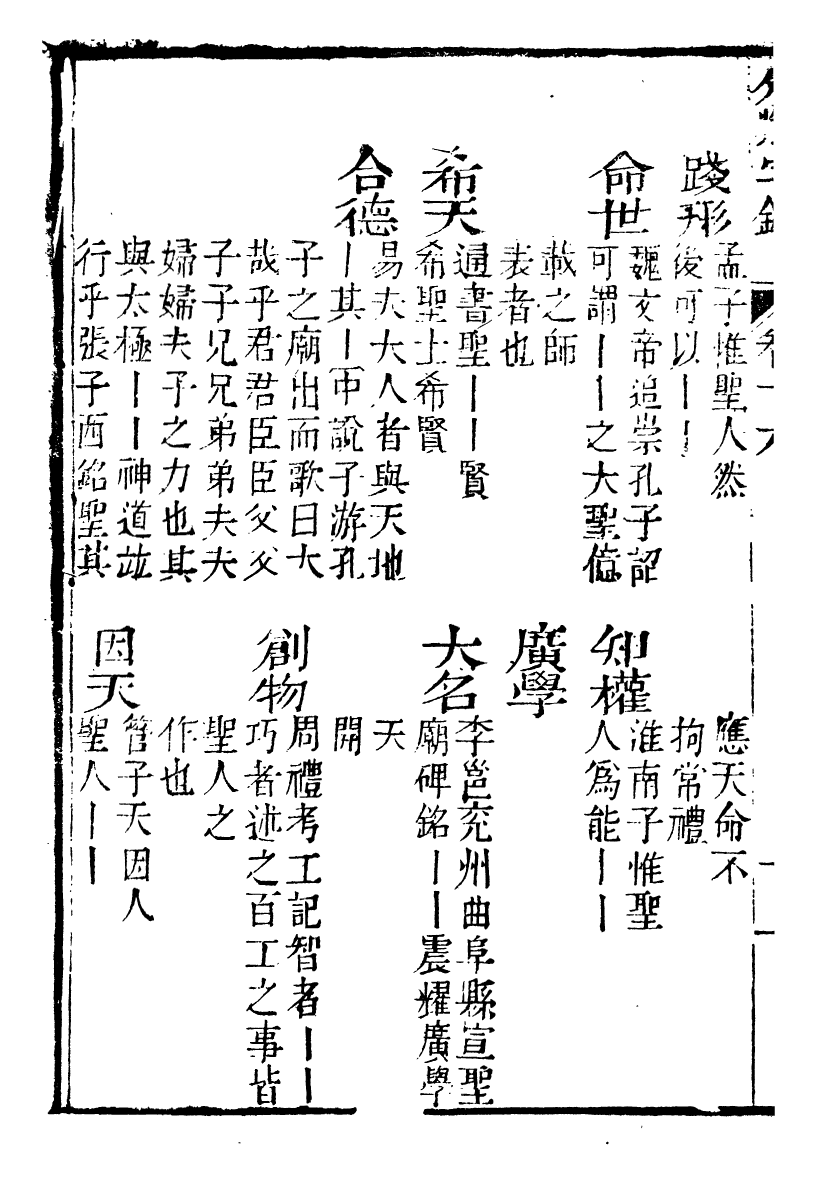 分類字錦 卷十六
踐形
孟子惟聖人然
後可以丨丨
命世
魏文帝追崇孔子詔
可謂丨丨之大聖億
載之師
表者也
希天
通書聖丨丨賢
希聖士希賢
合德
易夫大人者與天地
丨其丨中說子游孔
子之廟出而歌曰大
哉乎君君臣臣父父
子子兄兄弟弟夫夫
婦婦夫子之力也其
與太極丨丨神道並
行乎張子西銘聖其
應天命不
拘常禮
知權
淮南子惟聖
人爲能丨丨
廣學
大名
李邕兗州曲阜縣宣聖
廟碑銘丨丨震耀廣學
天
開
創物
周禮考工記智者丨丨
巧者述之百工之事皆
聖人之
作也
因天
管子天因人
聖人丨丨